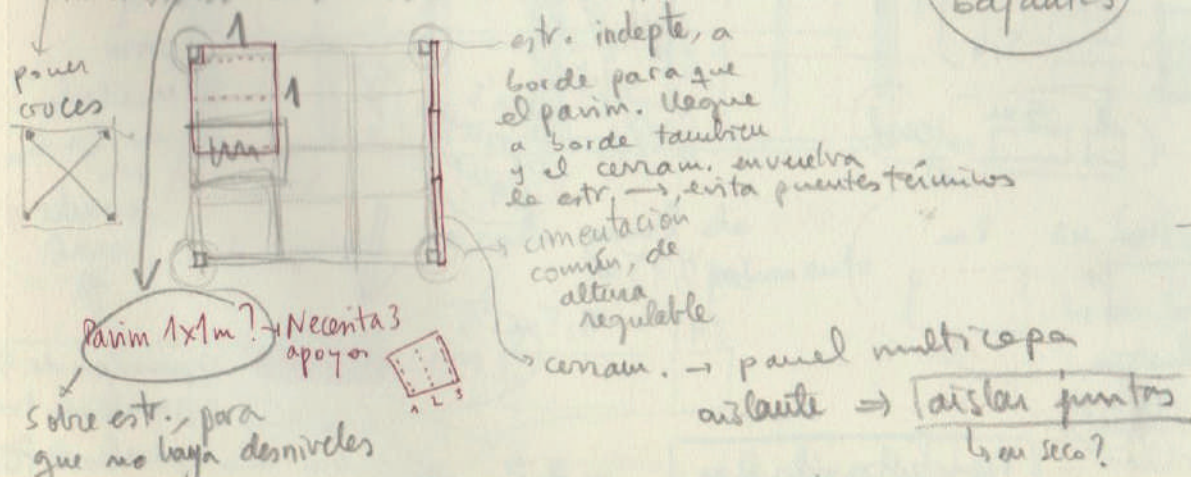 bajantes
poner
cruces
1
1
estr. indepte, a
borde para que
el pavim. llegue
a borde tambien
y el cerram. envuelva
la estr. → evita puentes térmicos
cimentación
común, de
altura
regulable
Pavim 1x1m? → Necesita 3
apoyos
1 2 3
cerram. → panel multicapa
aislante ⇒ aislar juntas
↳ en seco?
Sobre estr., para
que no haya desniveles